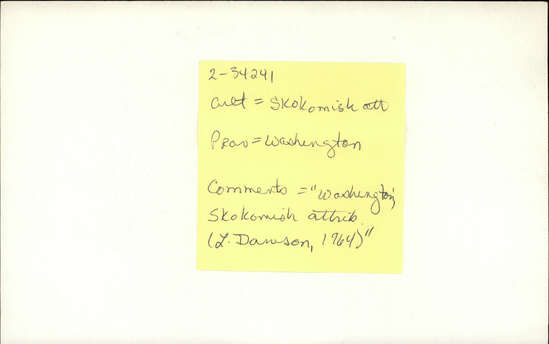 2-34241
Cult = Skokomish att
Prov = Washington
Comments = "Washington;
Skokomish attrib.
(L. Dawson, 1964)"